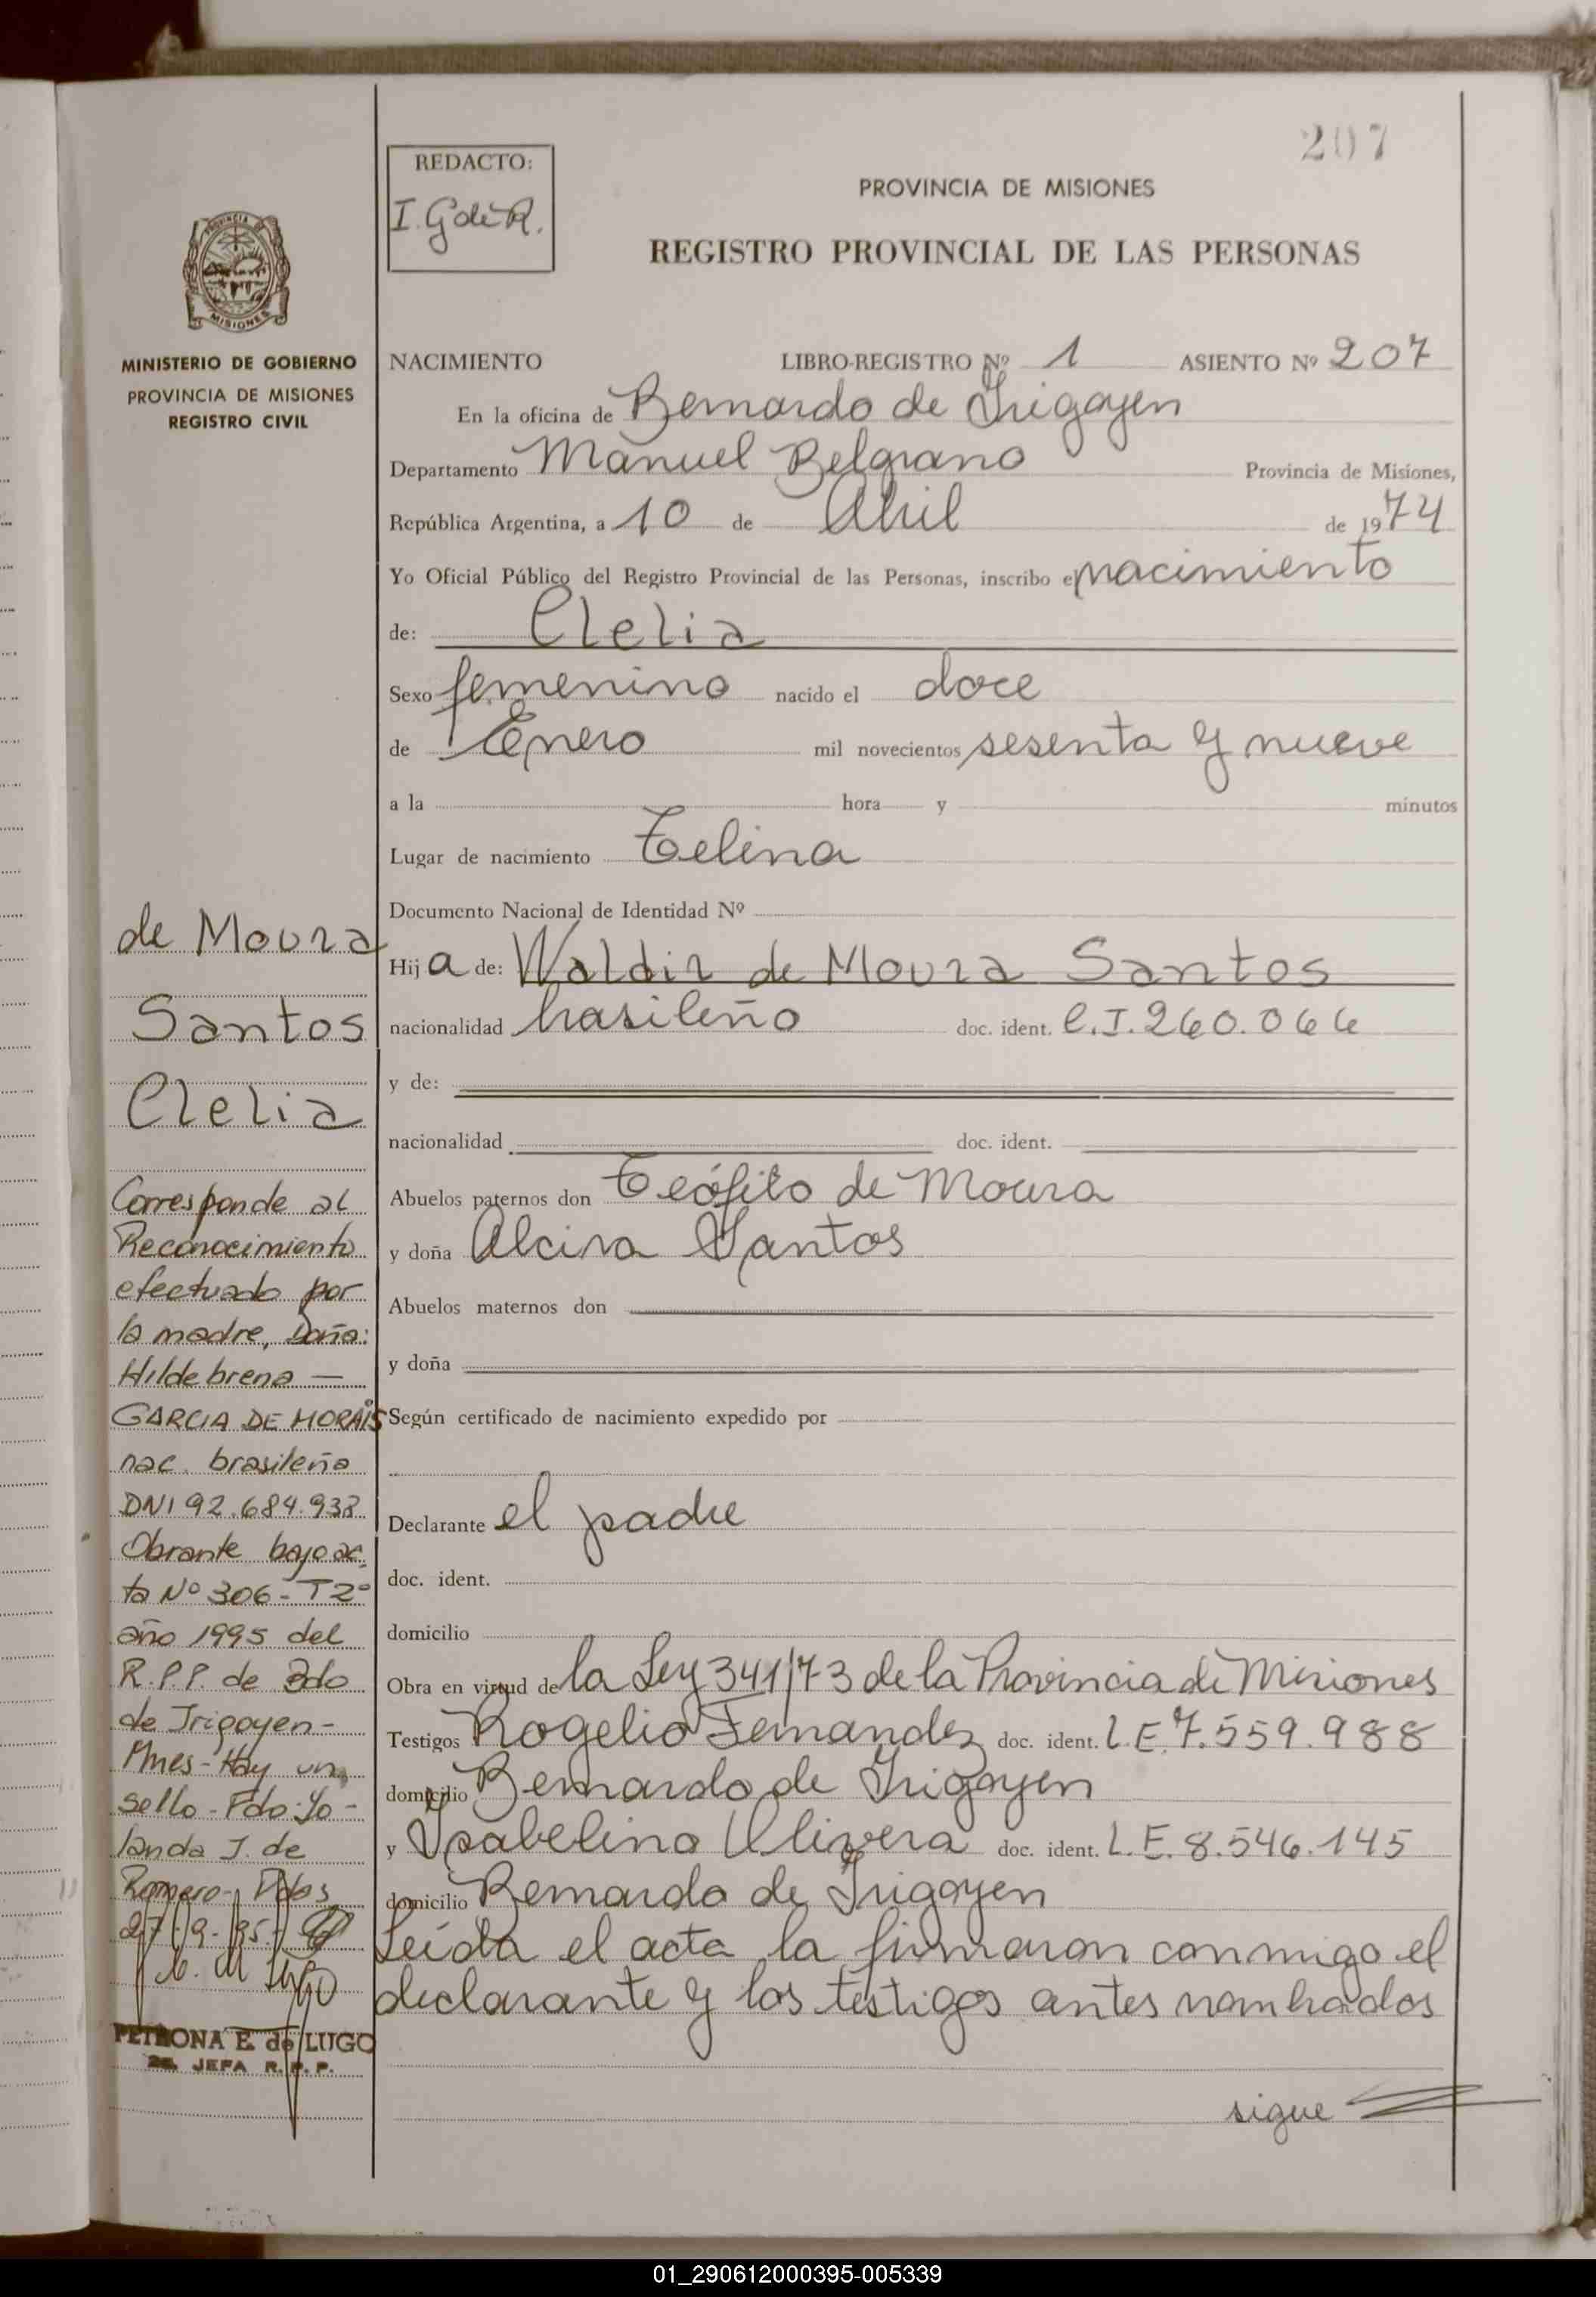 207
REDACTO:
I. G de R.
PROVINCIA DE MISIONES
REGISTRO PROVINCIAL DE LAS PERSONAS
PROVINCIA DE
MISIONES
MINISTERIO DE GOBIERNO
PROVINCIA DE MISIONES
REGISTRO CIVIL
NACIMIENTO LIBRO-REGISTRO Nº 1 ASIENTO Nº 207
En la oficina de Bernardo de Irigoyen
Departamento Manuel Belgrano Provincia de Misiones,
República Argentina, a 10 de Abril de 1974
Yo Oficial Público del Registro Provincial de las Personas, inscribo el nacimiento
de: Clelia
Sexo femenino nacido el doce
de Enero mil novecientos sesenta y nueve
a la hora y minutos
Lugar de nacimiento Celina
Documento Nacional de Identidad Nº
Hija de: Waldir de Moura Santos
nacionalidad brasileño doc. ident. C.I. 260.066
y de:
nacionalidad doc. ident.
Abuelos paternos don Teófilo de Moura
y doña Alcira Santos
Abuelos maternos don
y doña
Según certificado de nacimiento expedido por
Declarante el padre
doc. ident.
domicilio
Obra en virtud de la Ley 341/73 de la Provincia de Misiones
Testigos Rogelio Fernandez doc. ident. L.E. 7.559.988
domicilio Bernardo de Irigoyen
y Ysabelino Olivera doc. ident. L.E. 8.546.145
domicilio Bernardo de Irigoyen
Leída el acta la firmaron conmigo el
declarante y los testigos antes nombrados
sigue
de Moura
Santos
Clelia
Corresponde al
Reconocimiento
efectuado por
la madre, Doña:
Hildebrena —
GARCIA DE MORAIS
nac. brasileña
DNI 92.684.938
Obrante bajo ac-
ta Nº 306- T2º
año 1995 del
R.P.P. de Bdo
de Irigoyen-
Mnes- Hay un
sello- Fdo: Yo-
landa J. de
Romero- Pdas
27-9-95-
PETRONA E. de LUGO
JEFA R.P.P.
01_290612000395-005339